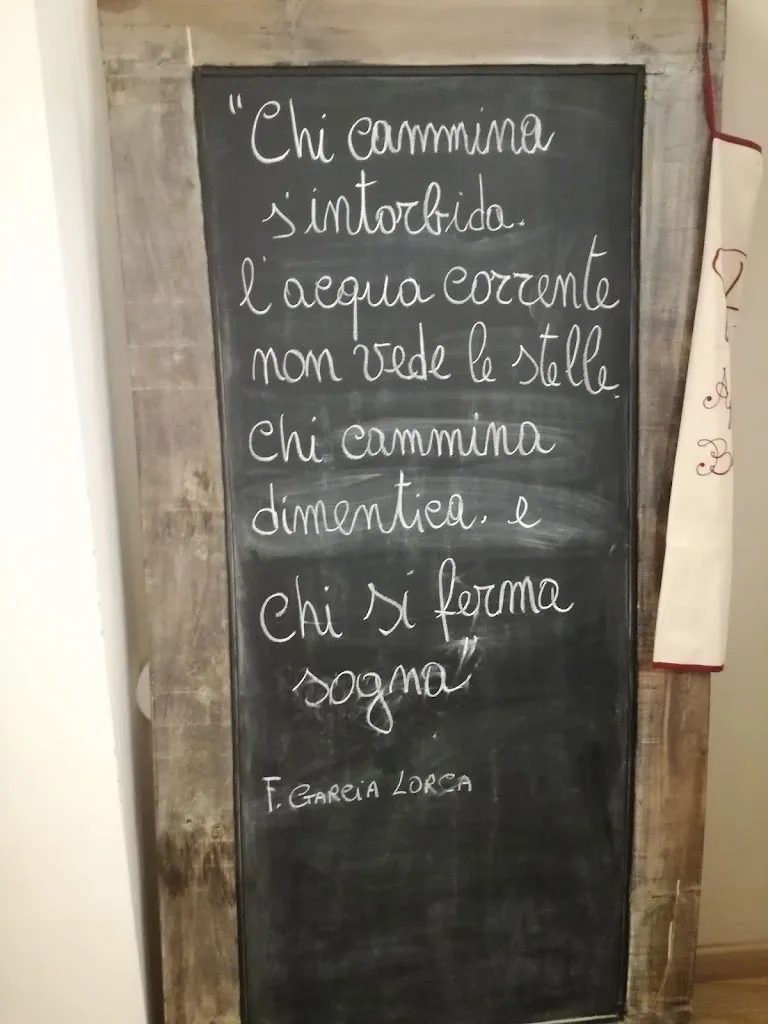 "Chi cammina
s'intorbida.
l'acqua corrente
non vede le stelle.
chi cammina
dimentica. e
chi si ferma
sogna"
F. GARCIA LORCA
B